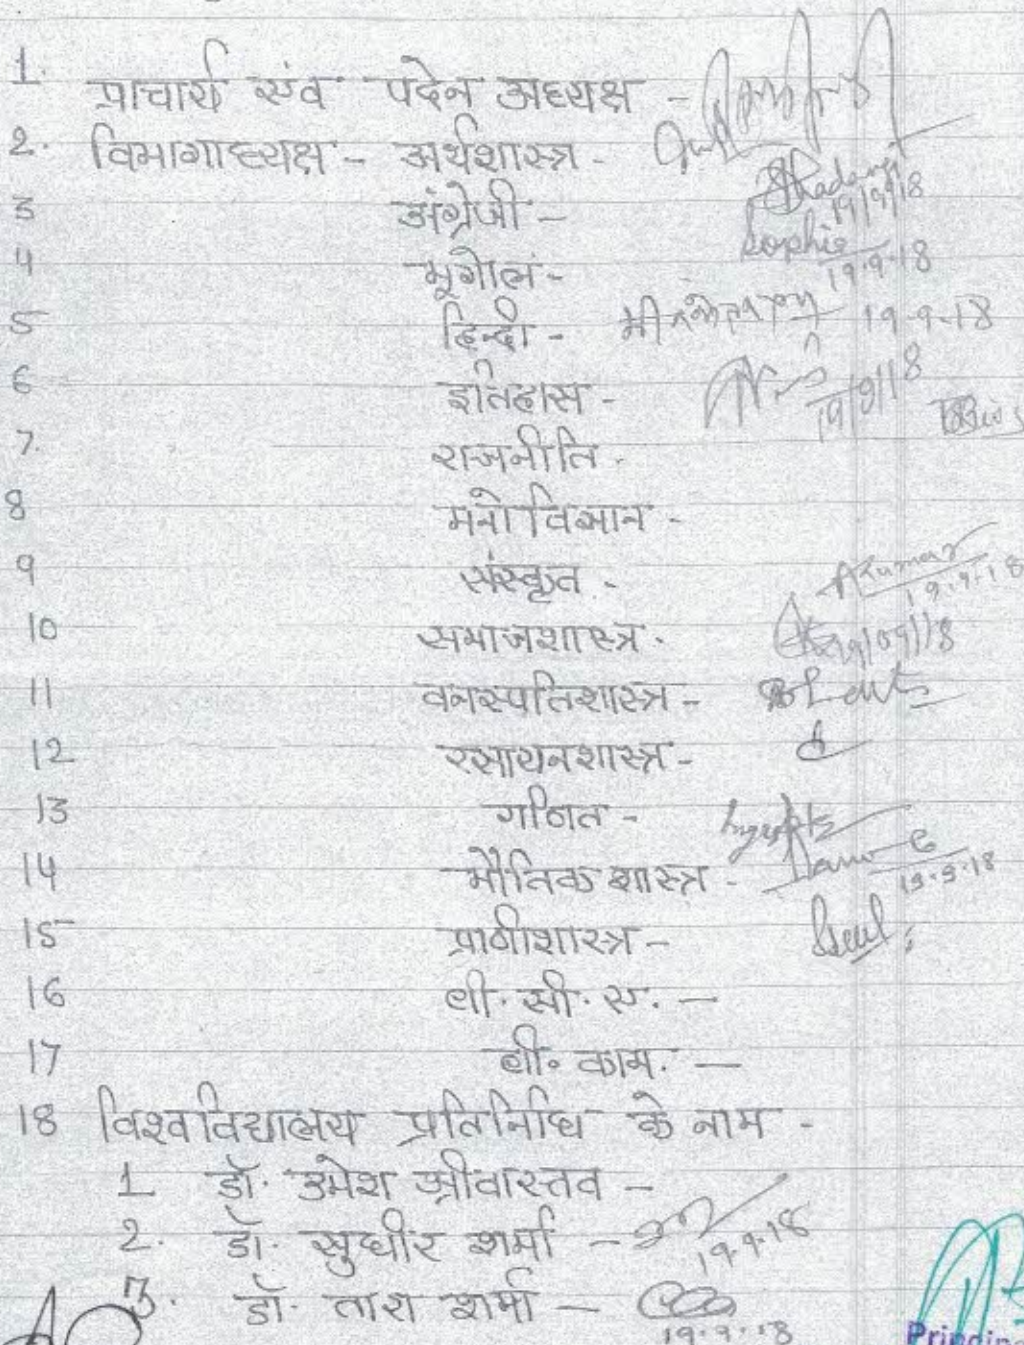 1. प्राचार्य एंव पदेन अध्यक्ष -
2. विभागाध्यक्ष - अर्थशास्त्र -
3 अंग्रेजी - 19/9/18
4 भूगोल - Sophie 19.9.18
5 हिन्दी - 19-9-18
6 इतिहास - 19/9/18
7. राजनीति -
8 मनोविज्ञान -
9 संस्कृत - AKumar 19.9.18
10 समाजशास्त्र - 19/09/18
11 वनस्पतिशास्त्र -
12 रसायनशास्त्र -
13 गणित -
14 भौतिक शास्त्र - 19.9.18
15 प्राणीशास्त्र -
16 बी. सी. ए. -
17 बी. काम. -
18 विश्वविद्यालय प्रतिनिधि के नाम -
1 डॉ. उमेश श्रीवास्तव -
2. डॉ. सुधीर शर्मा - 19.9.18
3. डॉ. तारा शर्मा - 19.9.18